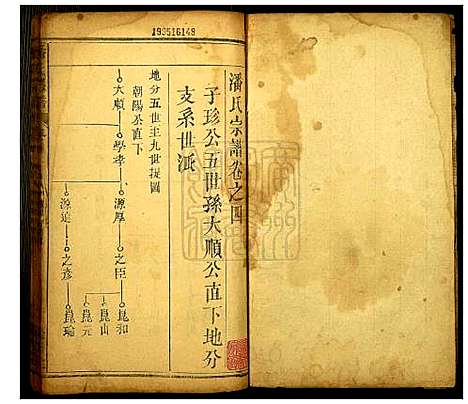 195516149
潘氏宗譜卷之四
子珍公五世孫大順公直下地分
支系世派
地分五世至九世提圖
朝陽公直下
大順 學孝 源厚 之臣 崑和
崑山
崑元
源遠 之彥 崑瑜